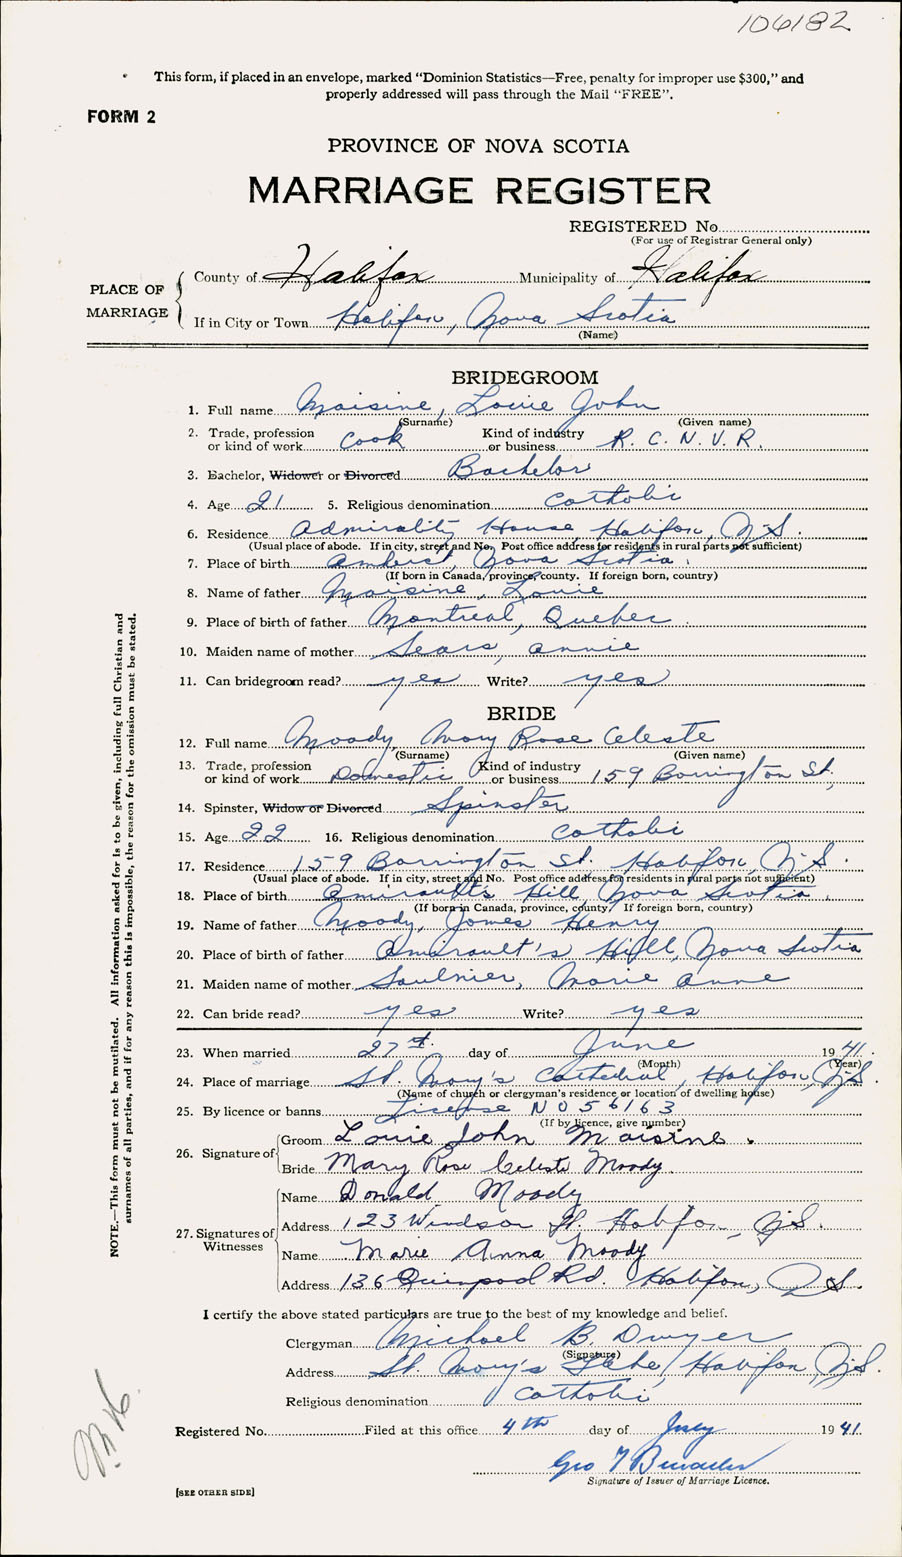 106182
This form, if placed in an envelope, marked "Dominion Statistics—Free, penalty for improper use $300," and
properly addressed will pass through the Mail "FREE".
FORM 2
PROVINCE OF NOVA SCOTIA
MARRIAGE REGISTER
REGISTERED No.
(For use of Registrar General only)
PLACE OF MARRIAGE
County of Halifax Municipality of Halifax
If in City or Town Halifax, Nova Scotia
(Name)
BRIDEGROOM
1. Full name Maisine, Louie John
(Surname) (Given name)
2. Trade, profession or kind of work Cook Kind of industry or business R. C. N. V. R.
3. Bachelor, Widower or Divorced Bachelor
4. Age 21 5. Religious denomination Catholic
6. Residence Admirality House, Halifax, N.S.
(Usual place of abode. If in city, street and No. Post office address for residents in rural parts not sufficient)
7. Place of birth Amherst, Nova Scotia.
(If born in Canada, province, county. If foreign born, country)
8. Name of father Maisine, Louie
9. Place of birth of father Montreal, Quebec.
10. Maiden name of mother Sears, Annie
11. Can bridegroom read? yes Write? yes
BRIDE
12. Full name Moody, Mary Rose Celeste
(Surname) (Given name)
13. Trade, profession or kind of work Domestic Kind of industry or business 159 Barrington St.
14. Spinster, Widow or Divorced Spinster
15. Age 22 16. Religious denomination Catholic
17. Residence 159 Barrington St. Halifax, N.S.
(Usual place of abode. If in city, street and No. Post office address for residents in rural parts not sufficient)
18. Place of birth Amirault's Hill, Nova Scotia.
(If born in Canada, province, county. If foreign born, country)
19. Name of father Moody, James Henry
20. Place of birth of father Amirault's Hill, Nova Scotia
21. Maiden name of mother Saulnier, Marie Anne
22. Can bride read? yes Write? yes
23. When married 27th day of June 1941.
(Month) (Year)
24. Place of marriage St. Mary's Cathedral, Halifax, N.S.
(Name of church or clergyman's residence or location of dwelling house)
25. By licence or banns License No 56163
(If by licence, give number)
26. Signature of
Groom Louie John Maisine.
Bride Mary Rose Celeste Moody.
27. Signatures of Witnesses
Name Donald Moody
Address 123 Windsor St. Halifax, N.S.
Name Marie Anna Moody
Address 136 Quinpool Rd. Halifax, N.S.
I certify the above stated particulars are true to the best of my knowledge and belief.
Clergyman Michael B. Dwyer
(Signature)
Address St. Mary's Glebe, Halifax, N.S.
Religious denomination Catholic
Registered No. Filed at this office 4th day of July 1941.
Geo
Signature of Issuer of Marriage Licence.
[SEE OTHER SIDE]
NOTE.—This form must not be mutilated. All information asked for is to be given, including full Christian and
surnames of all parties, and if for any reason this is impossible, the reason for the omission must be stated.